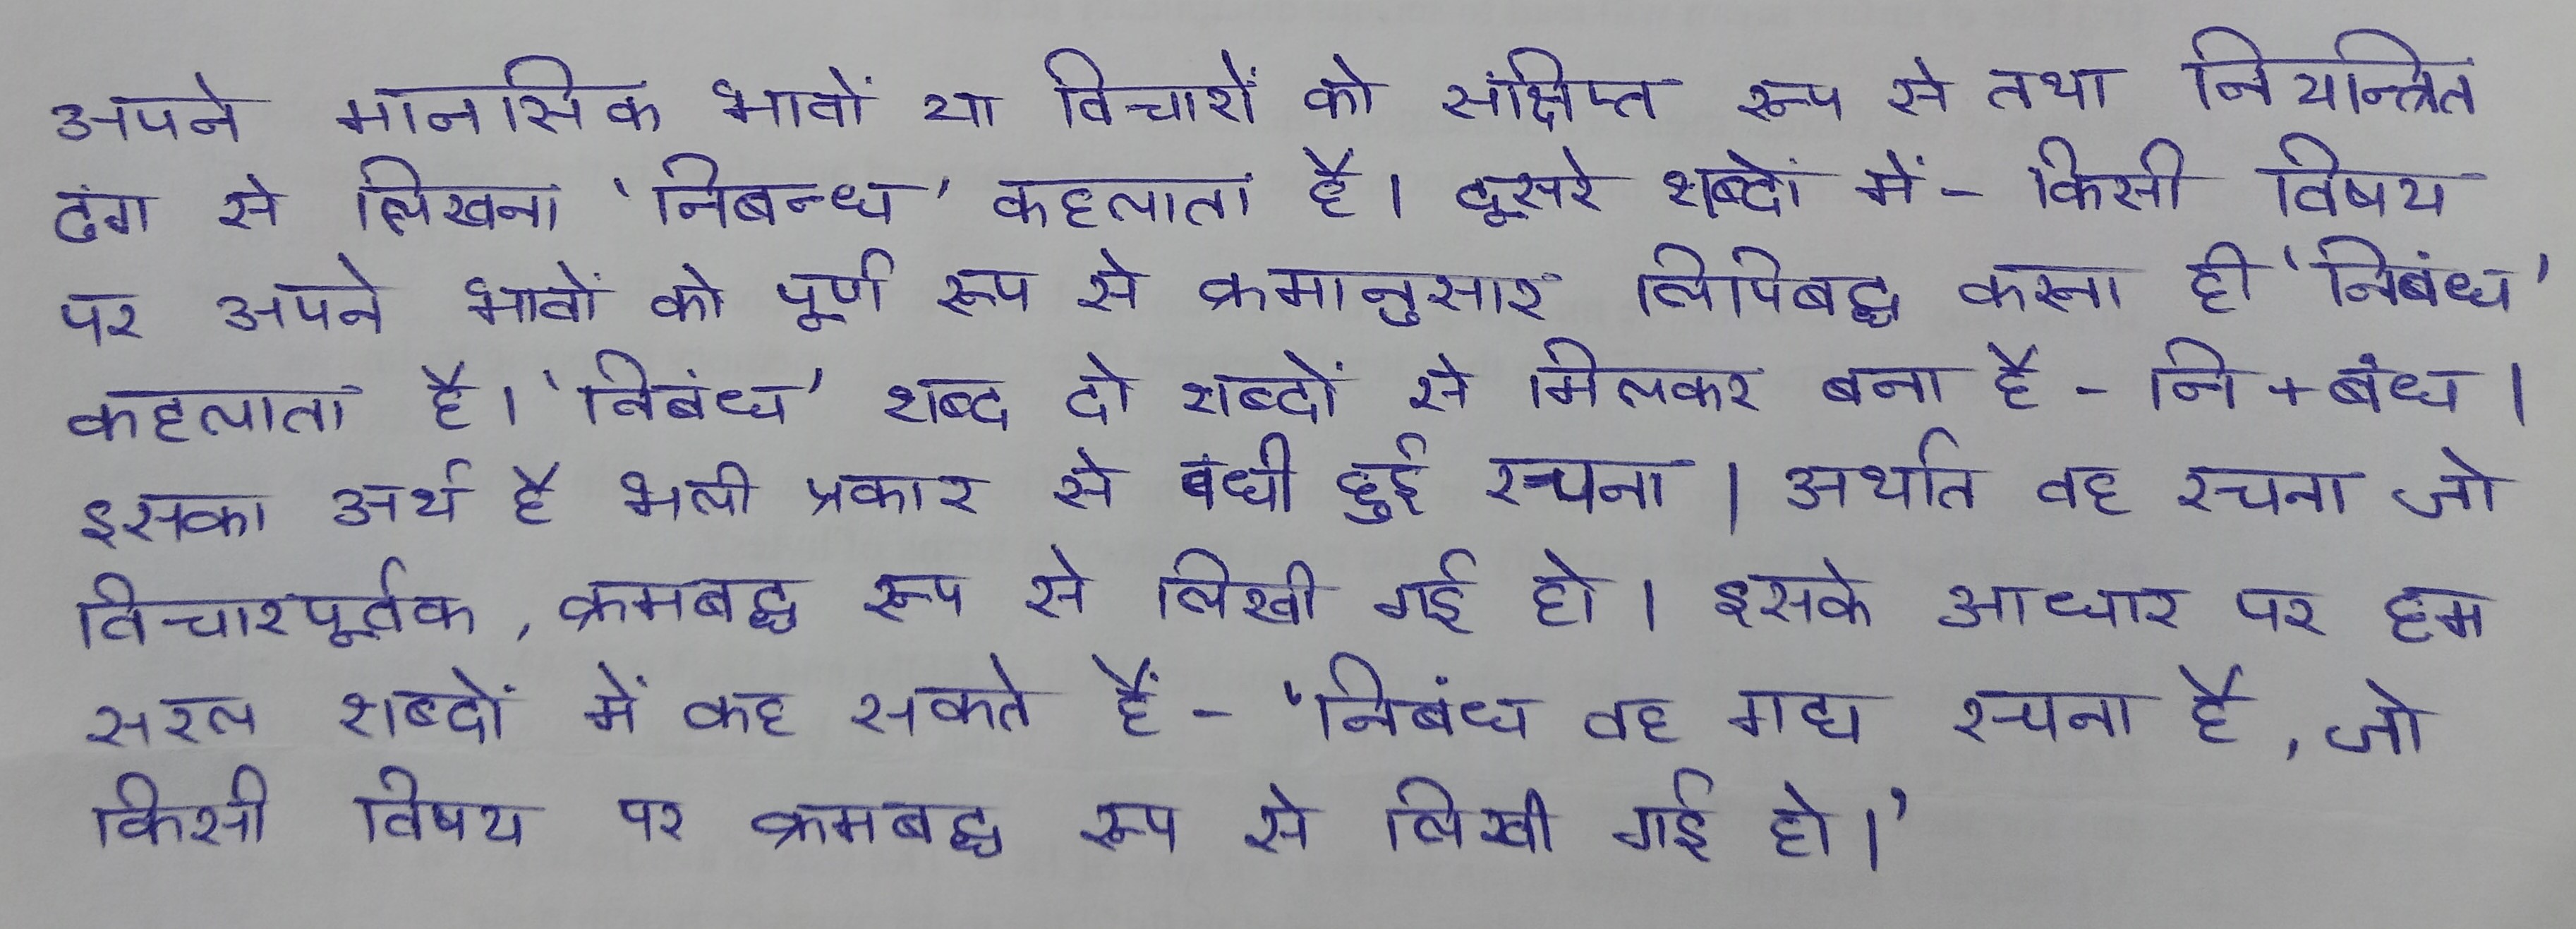 अपने मानसिक भावों या विचारों को संक्षिप्त रूप से तथा नियन्त्रित
ढंग से लिखना 'निबन्ध' कहलाता है। दूसरे शब्दों में - किसी विषय
पर अपने भावों को पूर्ण रूप से क्रमानुसार लिपिबद्ध करना ही 'निबंध'
कहलाता है। 'निबंध' शब्द दो शब्दों से मिलकर बना है - नि + बंध।
इसका अर्थ है भली प्रकार से बंधी हुई रचना। अर्थात वह रचना जो
विचारपूर्वक, क्रमबद्ध रूप से लिखी गई हो। इसके आधार पर हम
सरल शब्दों में कह सकते हैं - 'निबंध वह गद्य रचना है, जो
किसी विषय पर क्रमबद्ध रूप से लिखी गई हो।'